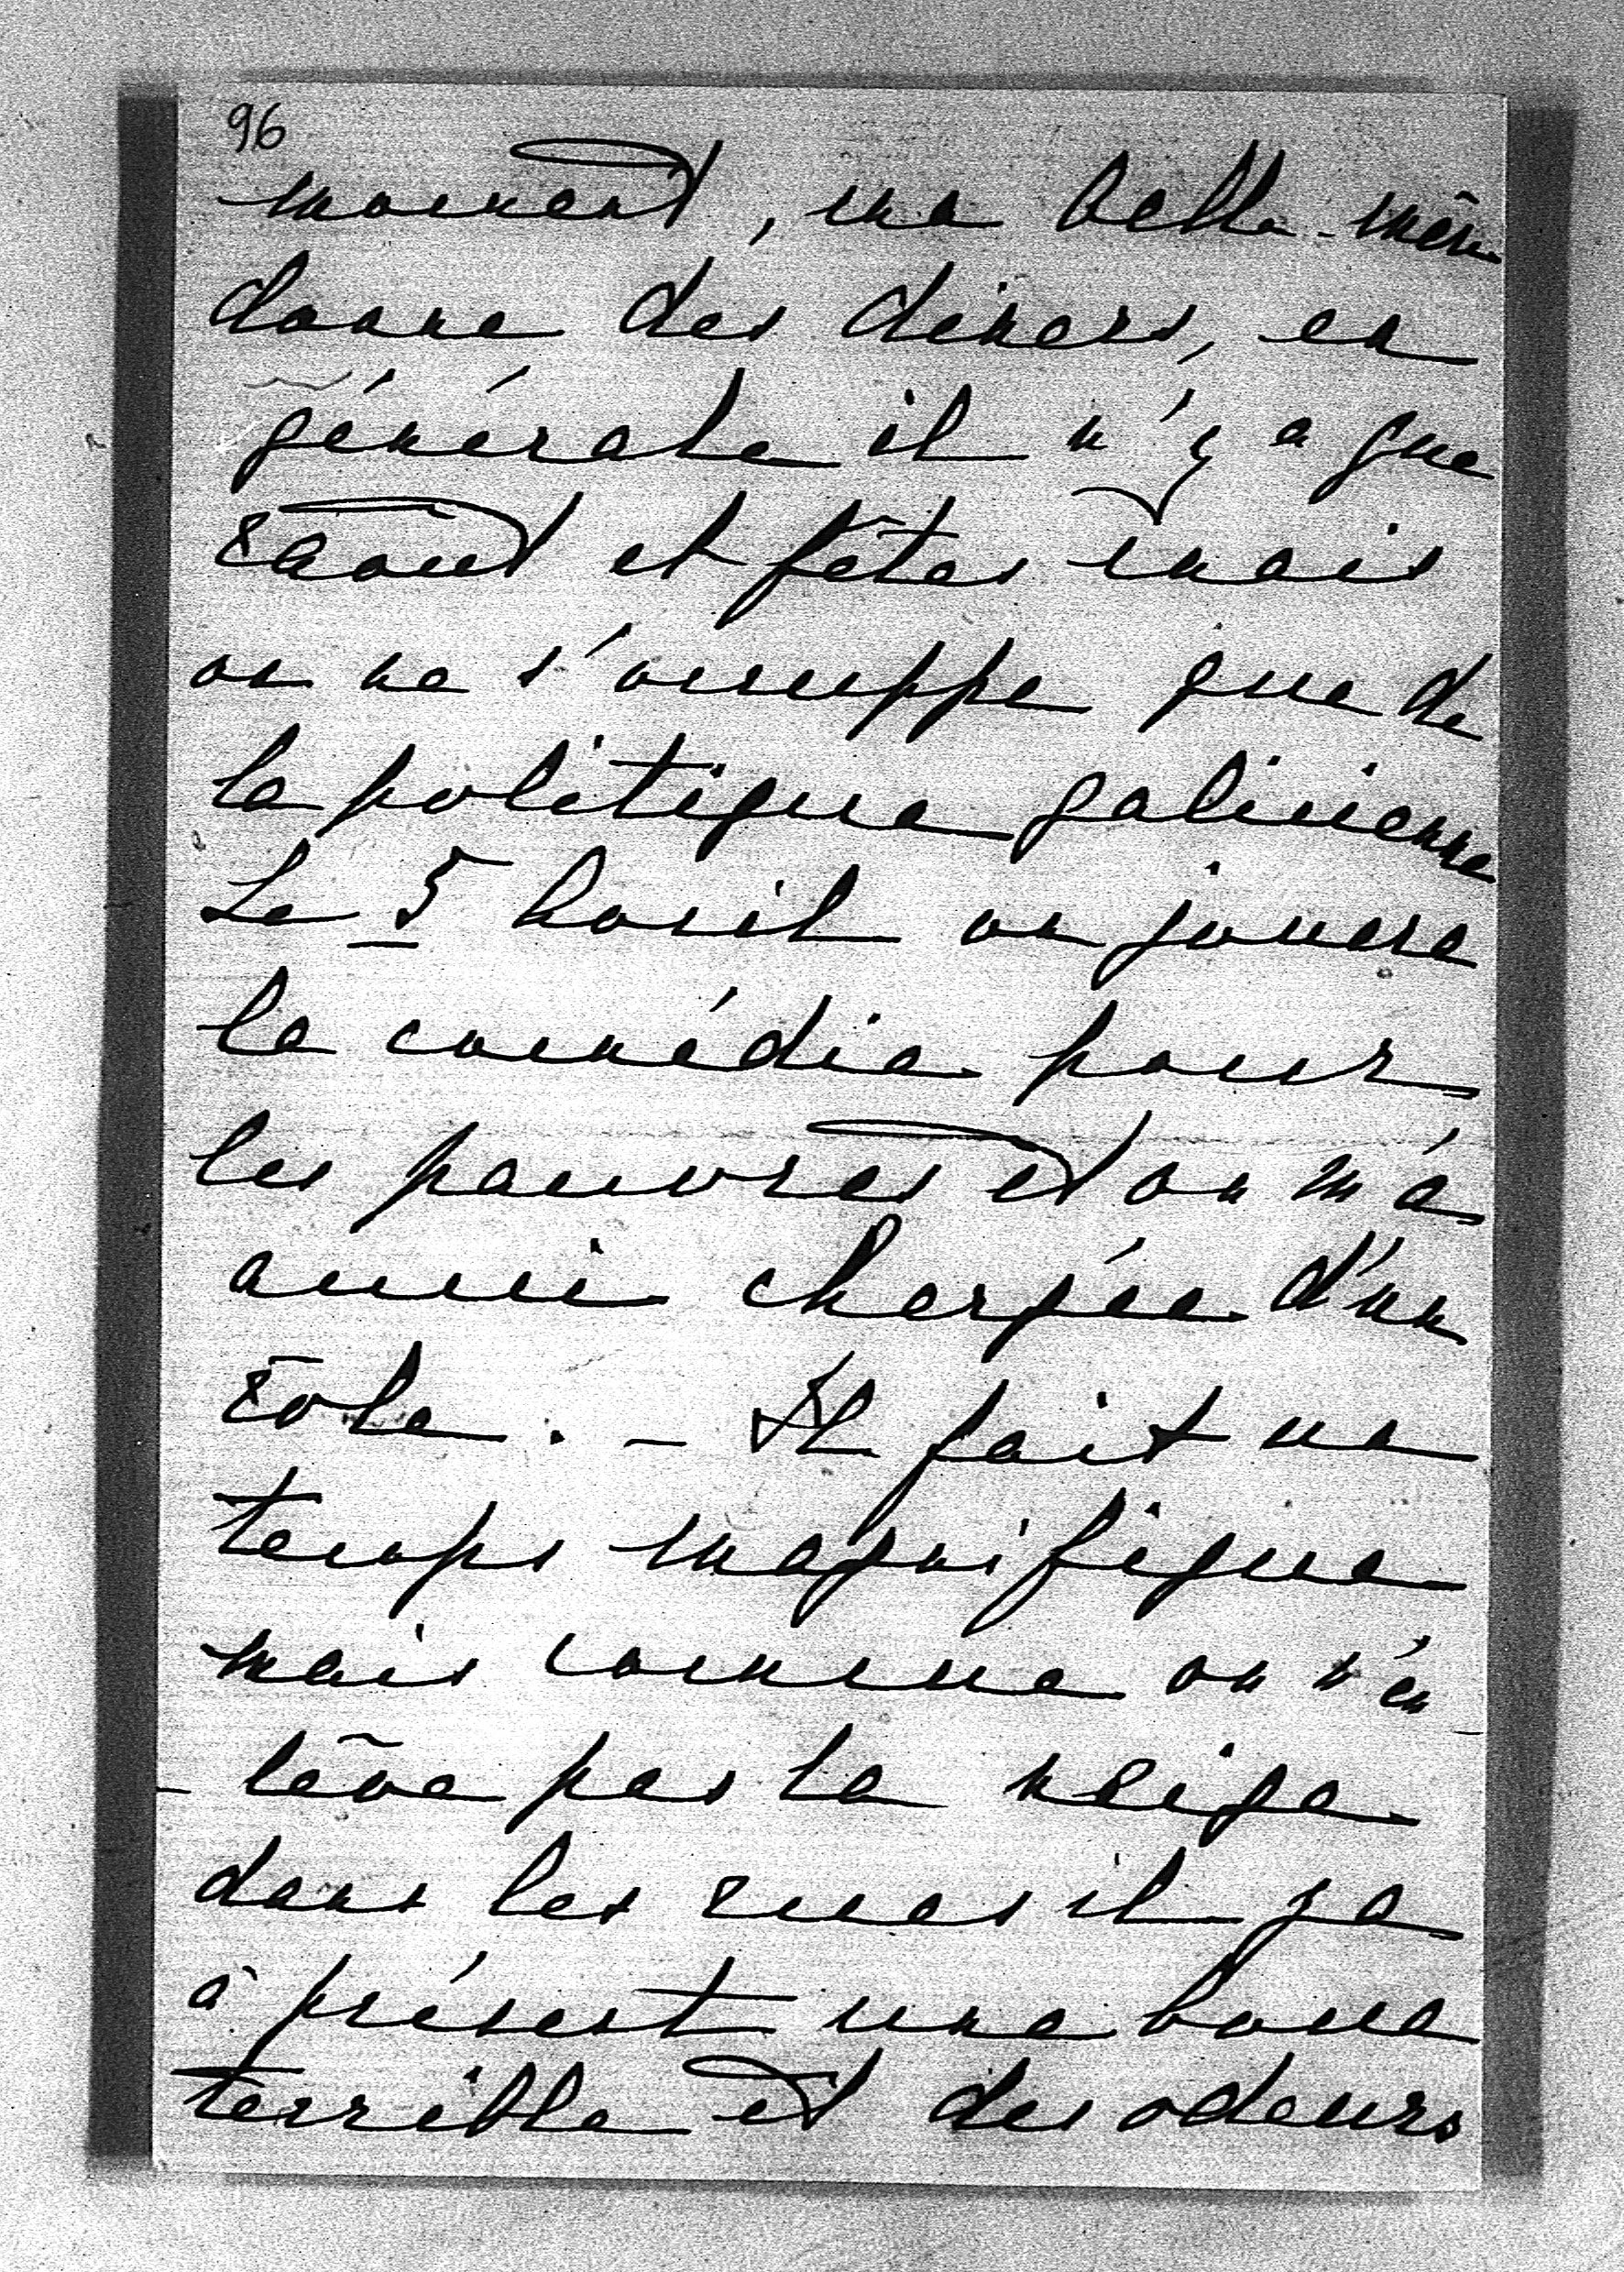 96
moment, ma belle-mère
donne des diners, en
générale il n'y a que
raout et fêtes mais
on ne s'occuppe que de
la politique galicienne
Le 5 avril on jouera
la comédie pour
les pauvres et on m'a
aussi chargée d'un
rôle. - Il fait un
temps magnifique
mais comme on n'en
- lêve pas la neige
dans les rues il y a
à présent une boue
terrible et des odeurs